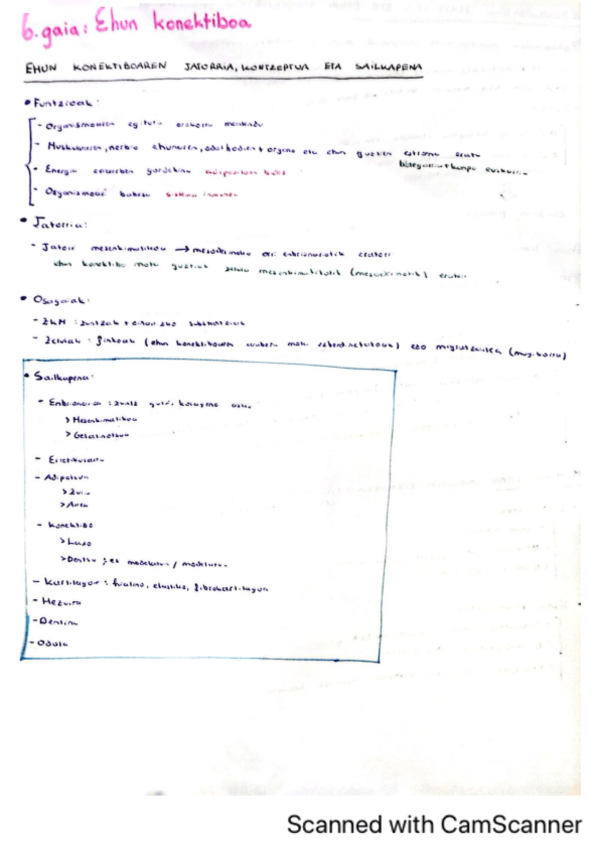 6. gaia: Ehun konektiboa
EHUN KONEKTIBOAREN JATORRIA, KONTZEPTUA ETA SAILKAPENA
• Funtzioak:
- Organismoaren egitura orokorra mantendu
- Muskuluaren, nerbio ehunaren, odol hodien + organo eta ehun guztien estroma eratu
- Energia
- Organismoa babestu sistema immunea
• Jatorria:
- Jatorri mesenkimatikoa → mesodermoko
ehun konektibo mota guztiak zelula mesenkimatikotik (mesodermotik) eratu
• Osagaiak:
- ZKM : zuntzak + oinarrizko substantzia
- Zelulak : finkoak (ehun konektiboaren mota) edo migratzaileak (mugikorra)
• Sailkapena:
- Enbrionarioa : zuntz gutxi, kolageno
> Mesenkimatikoa
> Gelatinotsua
- Erretikularra
- Adipotsua
> Zuria
> Arrea
- Konektibo
> Laxo
> Dentso : ez modelatua / modelatua
- Kartilagoa : hialino, elastiko, fibrokartilagoa
- Hezurra
- Dentina
- Odola
Scanned with CamScanner